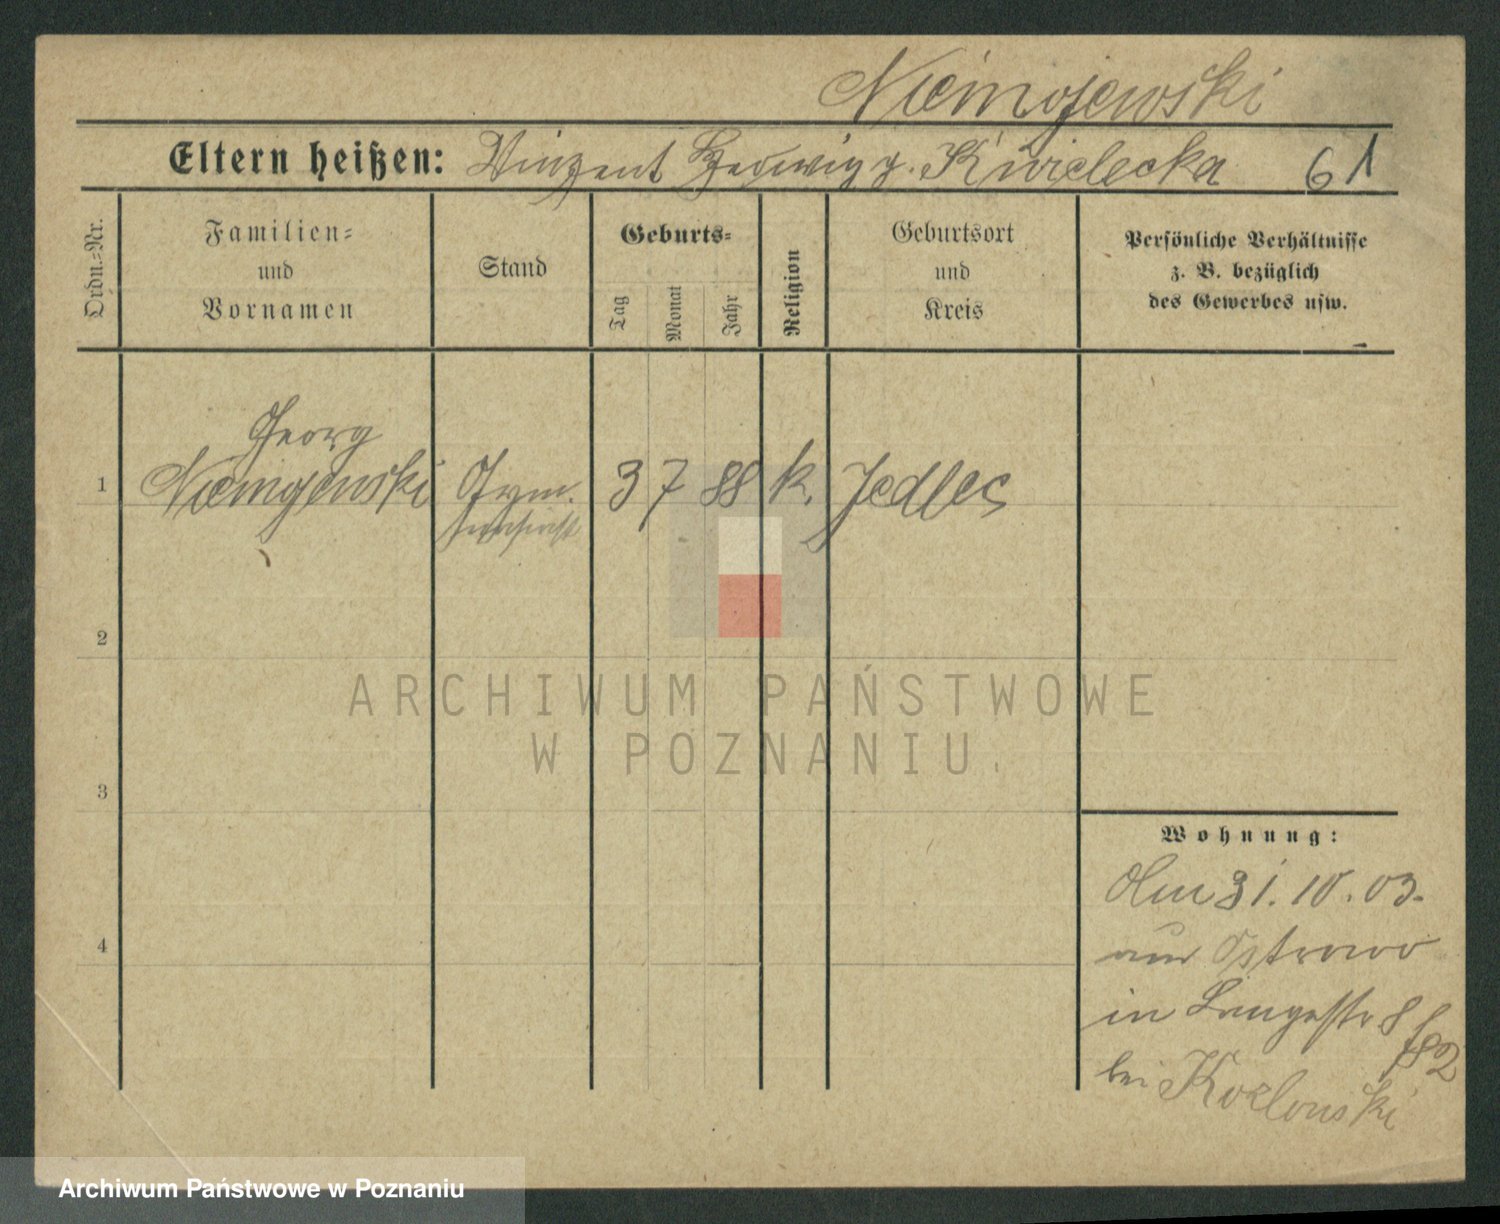 Niemojewski
Eltern heißen: Vinzent Hedwig g. Kwielecka 61
Ordn.-Nr.
Familien-
und
Vornamen
Stand
Geburts-
Tag
Monat
Jahr
Religion
Geburtsort
und
Kreis
Persönliche Verhältnisse
z. B. bezüglich
des Gewerbes usw.
Georg
1 Niemojewski Gym. 3 7 88 k. Jedlec
2
3
4
Wohnung:
Am 31. 10. 03.
aus Ostrowo
in Langestr 8
bei Kozlowski
ARCHIWUM PAŃSTWOWE
W POZNANIU
Archiwum Państwowe w Poznaniu